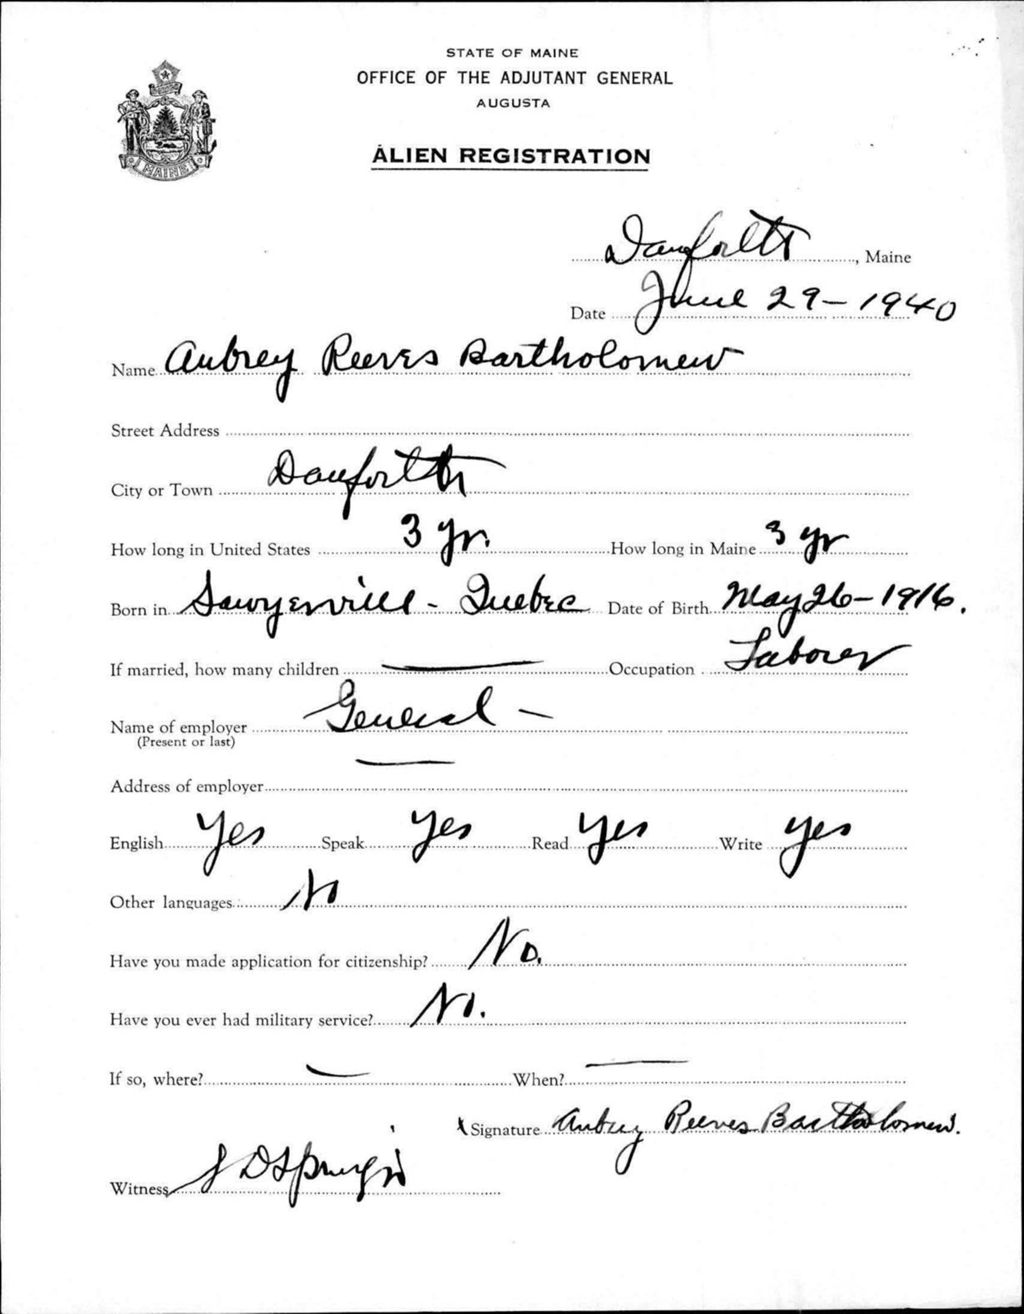 STATE OF MAINE
OFFICE OF THE ADJUTANT GENERAL
AUGUSTA
ALIEN REGISTRATION
MAINE
Danforth, Maine
Date June 29-1940
Name Aubrey Reeves Bartholomew
Street Address
City or Town Danforth
How long in United States 3 yr. How long in Maine 3 yr
Born in Sawyerville - Quebec Date of Birth May 26-1916.
If married, how many children — Occupation Laborer
Name of employer General -
(Present or last)
Address of employer —
English Yes Speak Yes Read Yes Write yes
Other languages No
Have you made application for citizenship? No.
Have you ever had military service? No.
If so, where? — When? —
Signature Aubrey Reeves Bartholomew.
Witness